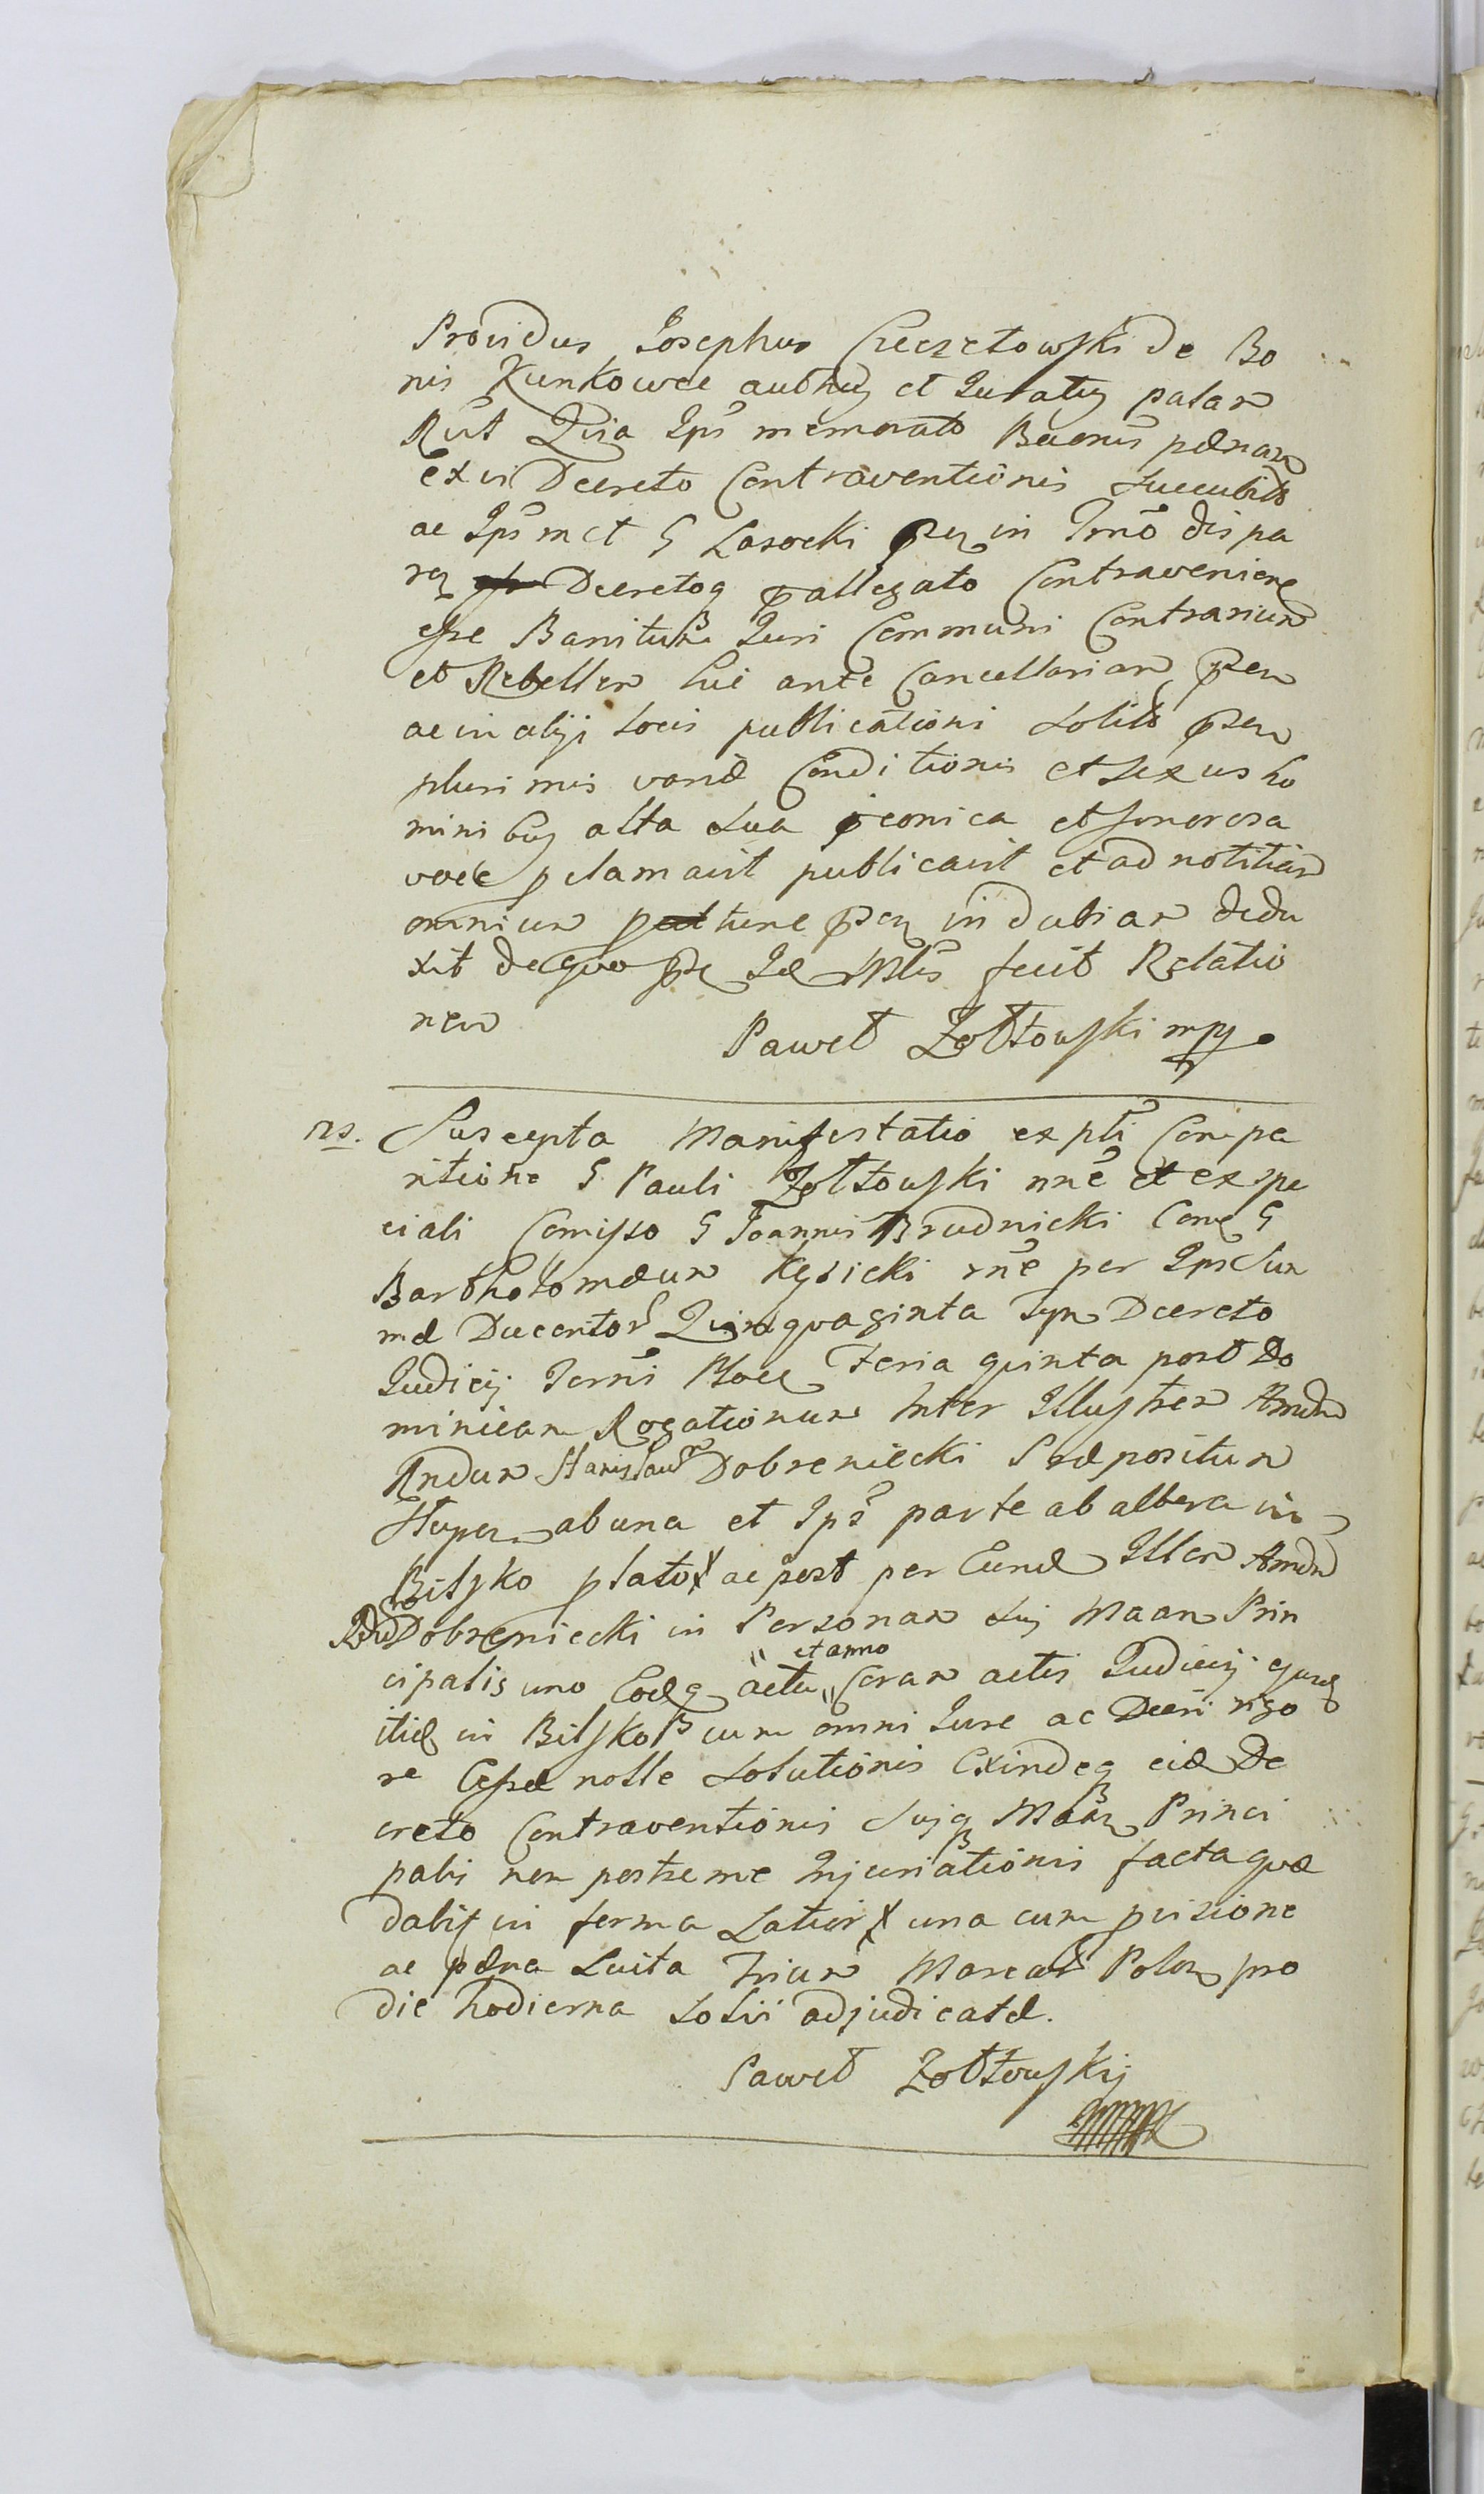 Providus Josephus Czeczetowski de Bo
nis Kunkowce authus et Juratus palam
Quia Ips memorato pænam
ex vi Decreto Contraventionis succubito
ac Ipsmet G Lasocki in Trno dispa
Decretoq pallegato Contravenien
esse Banitum Juri Communi Contrarium
et Rebellem hic ante Cancellariam psen
ac in alijs locis publicationi solito psen
plurimis variæ Conditionis et sexus ho
minibus alta sua et sonorosa
voce pclamavit publicavit et ad notitiam
omnium tunc psen in dubiam dedu
xit de quo Id Mlis fecit Relatio
nem
Paweł Zołtowski mp
ns. Suscepta Manifestatio ex pli Compa
ritione G Pauli Zołtowski nne et ex spe
ciali Comisso G Joannis Brudnicki Con G
Bartholomæum Kęsicki rne per Ips Sum
mæ Ducentor Quinquaginta Tyn Decreto
Judicij Terris Ploc Feria quinta post Do
minicam Rogationum Inter Illustrem Amdm
Rndum Stanislaum Dobreniecki Præpositum
ab una et Ips parte ab altera in
Bilsko plato ac post per Eund Illem Amdm
Rdum Dobreniecki in Personam suj Maan Prin
cipalis uno Eodq actu et anno Coram actis Judicij
itid in Bilsko cum omni Jure ac Decri rigo
re Cessæ nolle solutionis Exindeq eid De
creto Contraventionis sujq Maan Princi
palis non postreme Injuriationis facta quæ
dabit in forma Latior una cum pvisione
ac pæna Luita Trium Marcar Polon pro
die hodierna solvi adjudicatæ.
Paweł Zołtowskij